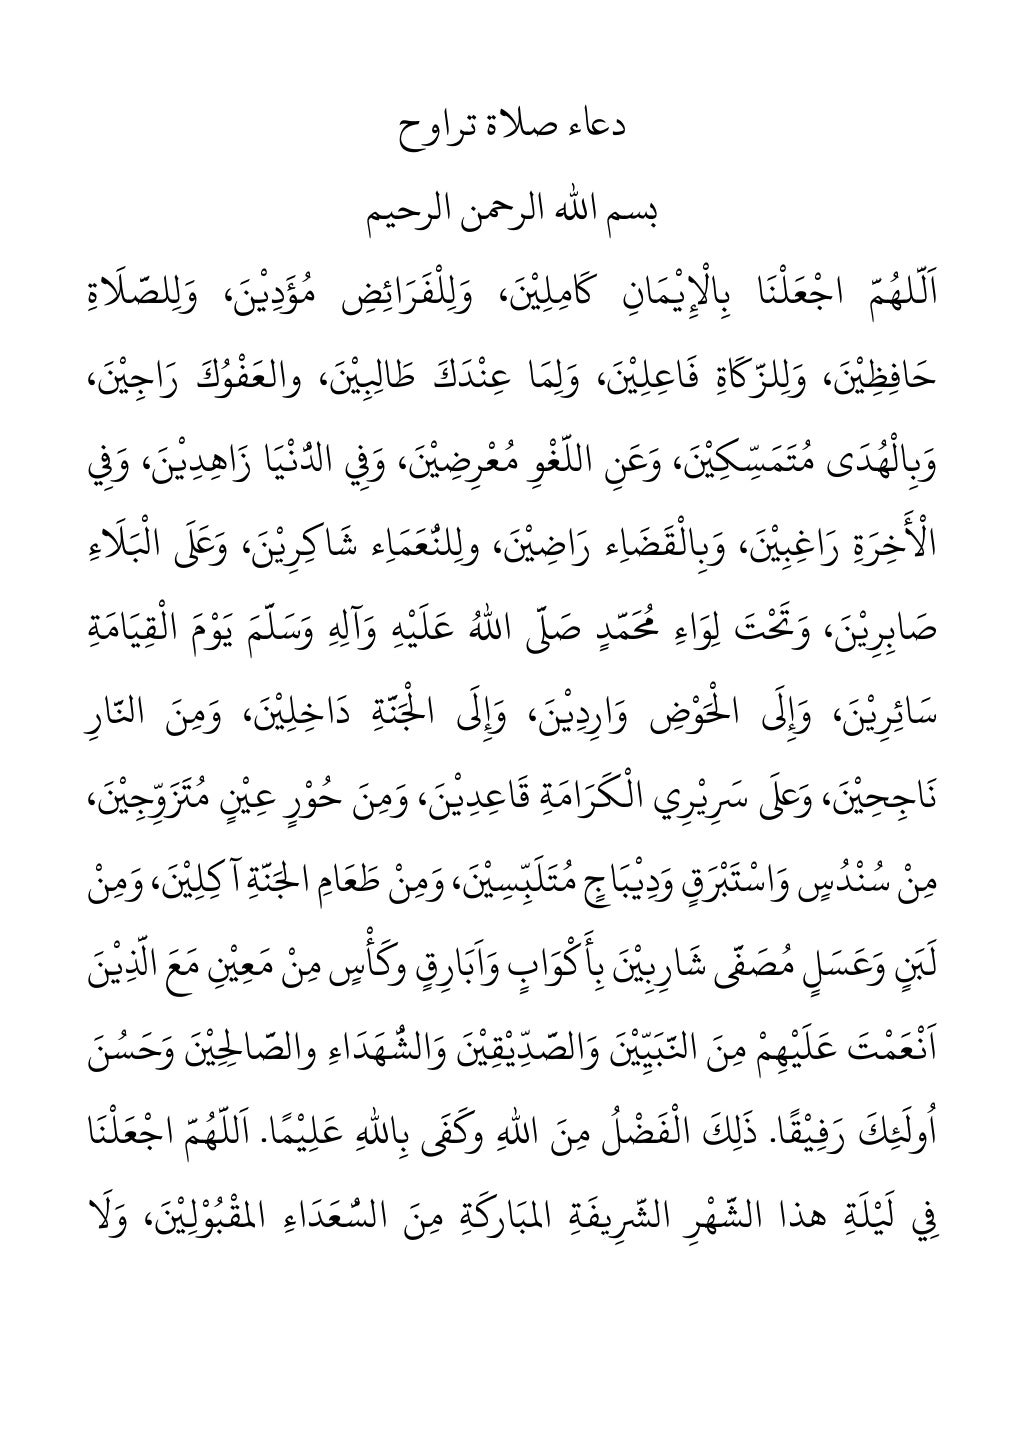 دعاء صلاة تراوح
بسم الله الرحمن الرحيم
اَللّٰهُمّ اجْعَلْنَا بِالْإِيْمَانِ كَامِلِيْنَ، وَلِلْفَرَائِضِ مُؤَدِيْنَ، وَلِلصّلَاةِ
حَافِظِيْنَ، وَلِلزّكَاةِ فَاعِلِيْنَ، وَلِمَا عِنْدَكَ طَالِبِيْنَ، والعَفْوُكَ رَاجِيْنَ،
وَبِالْهُدَى مُتَمَسِّكِيْنَ، وَعَنِ اللّغْوِ مُعْرِضِيْنَ، وَفِي الدُّنْيَا زَاهِدِيْنَ، وَفِي
الْأَخِرَةِ رَاغِبِيْنَ، وَبِالْقَضَاِء رَاضِيْنَ، ولِلنُّعَمَاِء شَاكِرِيْنَ، وَعَلَى الْبَلَاءِ
صَابِرِيْنَ، وَتَحْتَ لِوَاءِ مُحَمّدٍ صَلّى اللهُ عَلَيْهِ وَآلِهِ وَسَلّمَ يَوْمَ الْقِيَامَةِ
سَائِرِيْنَ، وَإِلَى الْحَوْضِ وَارِدِيْنَ، وَإِلَى الْجَنّةِ دَاخِلِيْنَ، وَمِنَ النّارِ
نَاجِحِيْنَ، وَعلَى سَرِيْرِي الْكَرَامَةِ قَاعِدِيْنَ، وَمِنَ حُوْرٍ عِيْنٍ مُتَزَوِّجِيْنَ،
مِنْ سُنْدُسٍ وَاسْتَبْرَقٍ وَدِيْبَاجٍ مُتَلَبِّسِيْنَ، وَمِنْ طَعَامِ الجَنّةِ آكِلِيْنَ، وَمِنْ
لَبَنٍ وَعَسَلٍ مُصَفّى شَارِبِيْنَ بِأَكْوَابٍ وَاَبَارِقٍ وكَأْسٍ مِنْ مَعِيْنِ مَعَ الّذِيْنَ
اَنْعَمْتَ عَلَيْهِمْ مِنَ النّبَيِّيْنَ وَالصّدِّيْقِيْنَ وَالشُّهَدَاءِ والصّالِحِيْنَ وَحَسُنَ
اُولَئِكَ رَفِيْقًا. ذَلِكَ الْفَضْلُ مِنَ اللهِ وكَفَى بِاللهِ عَلِيْمًا. اَللّهُمّ اجْعَلْنَا
فِي لَيْلَةِ هذا الشّهْرِ الشّرِيفَةِ المبَاركَةِ مِنَ السُّعَدَاءِ المقْبُوْلِيْنَ، وَلَا